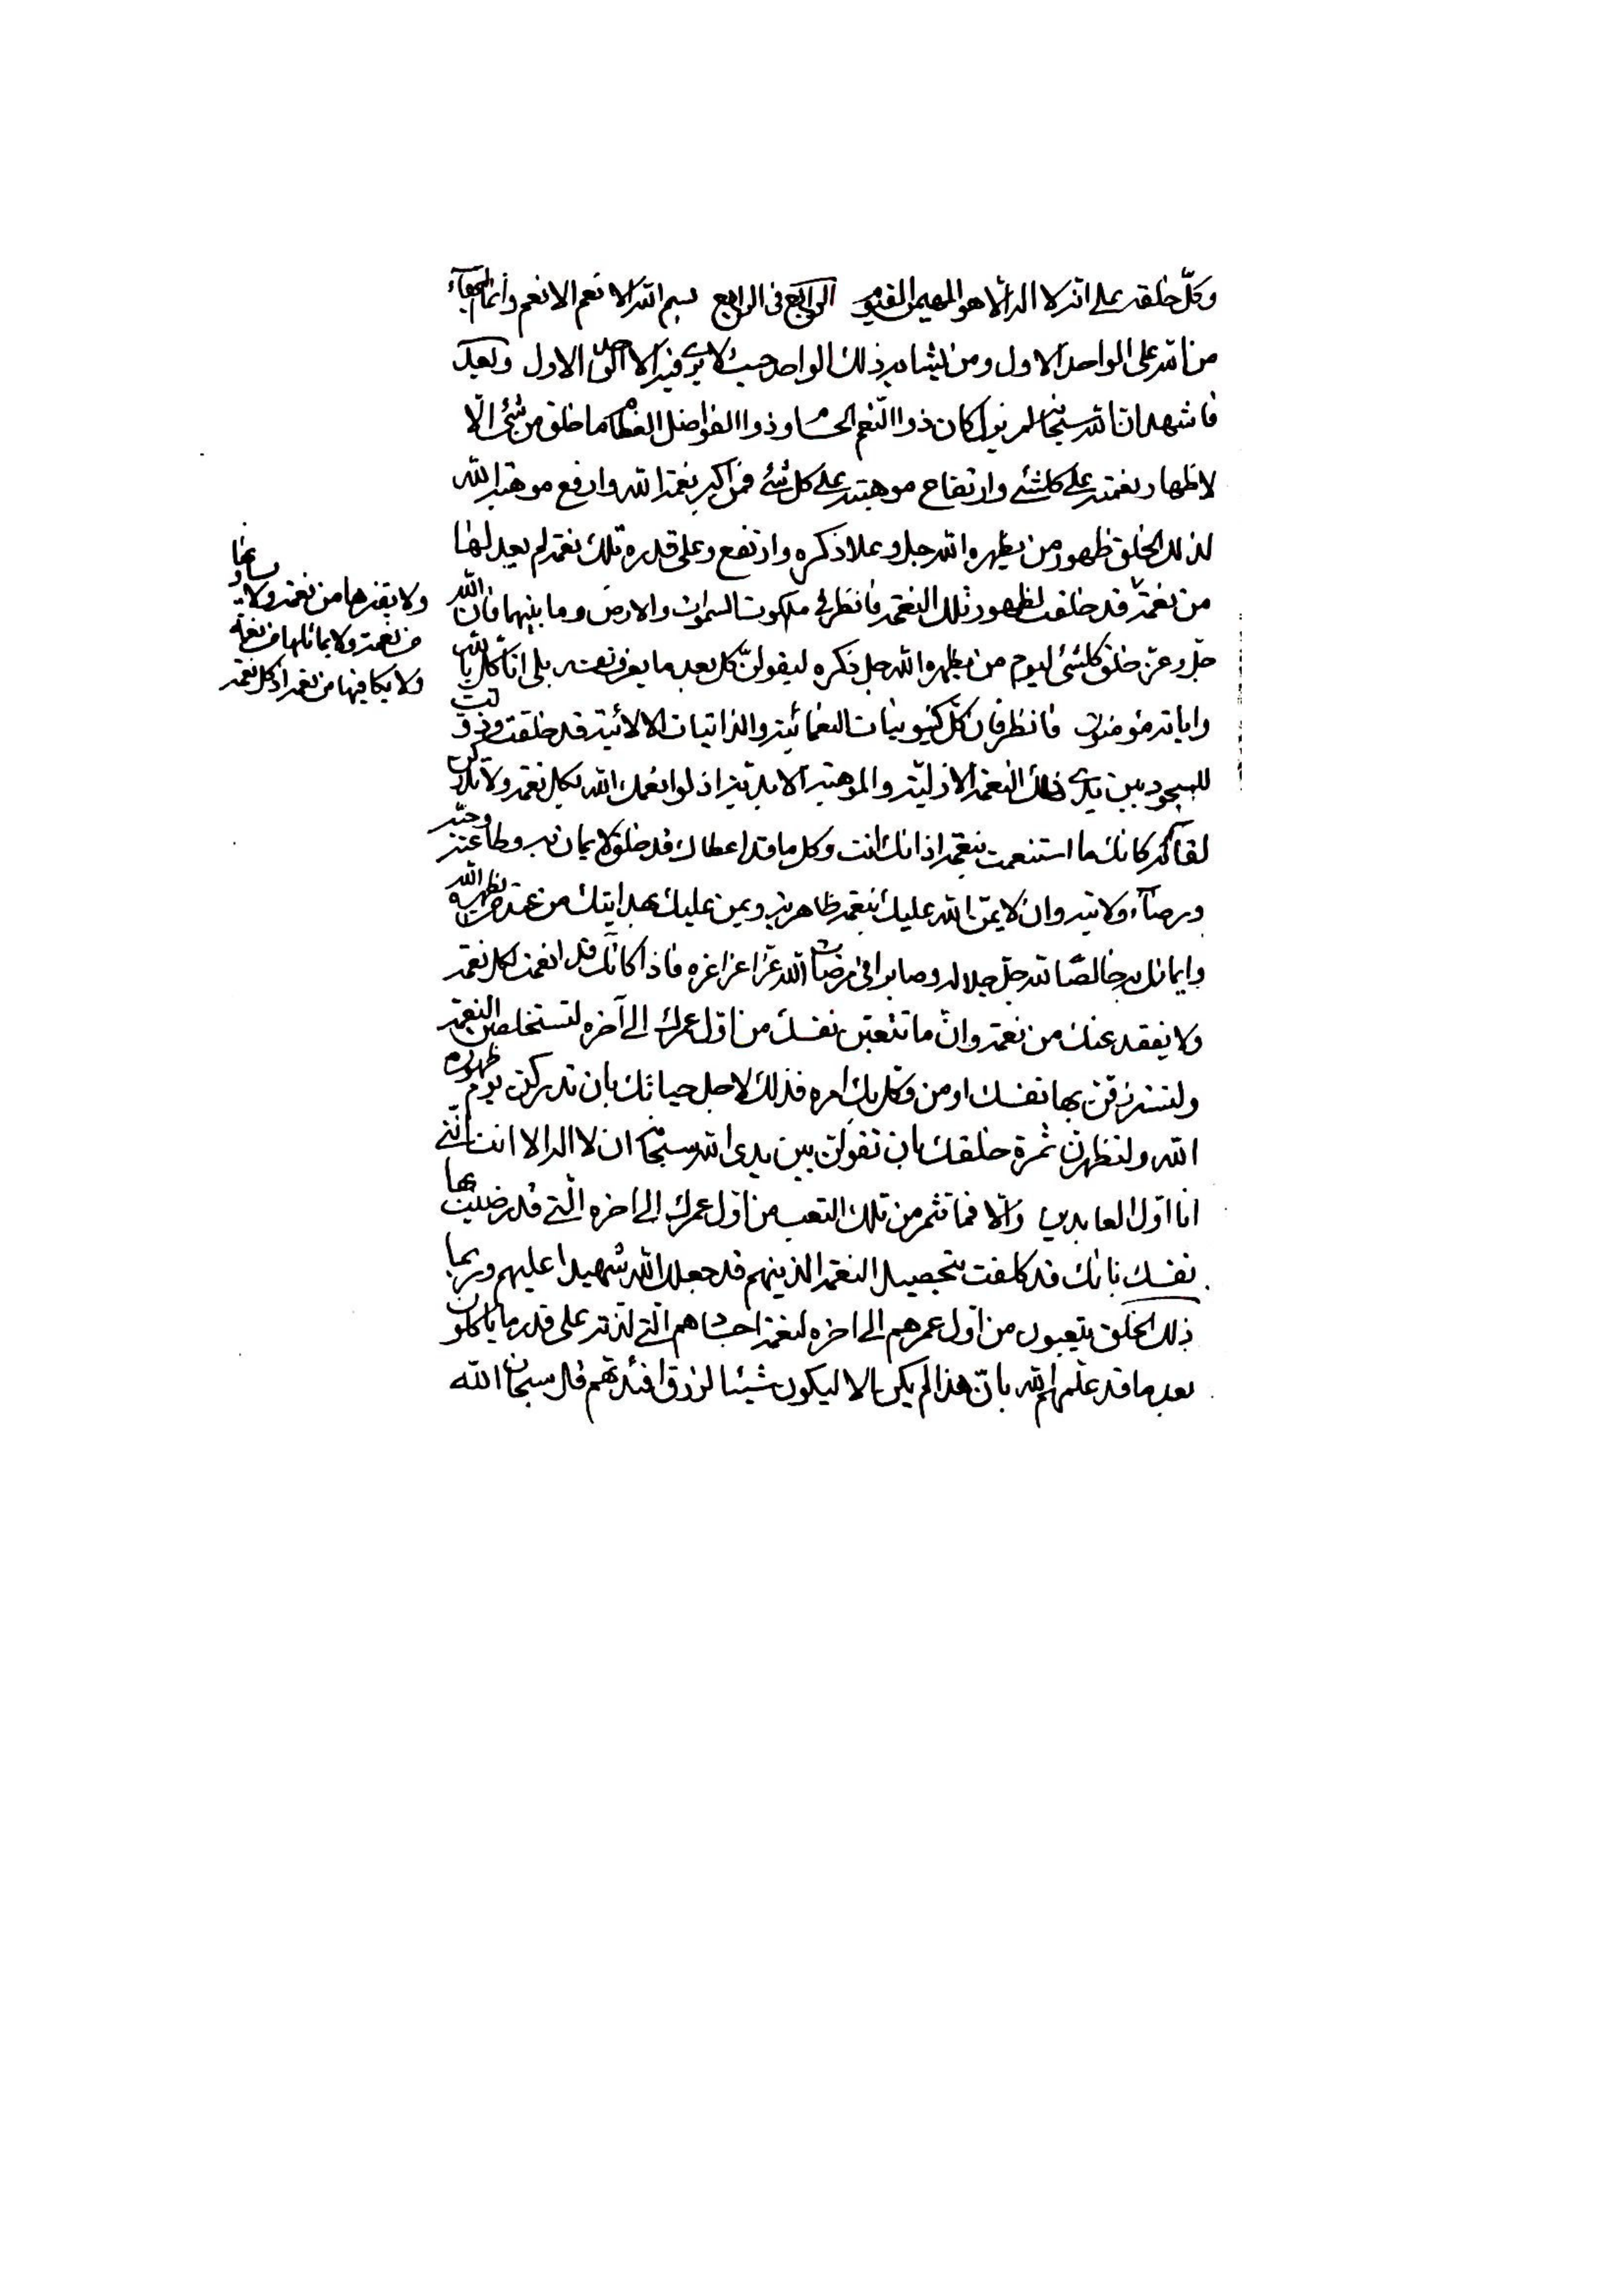 وكلّ خلقه على انه لا اله الا هو المهيمن القيوم الرابع فى الرابع بسم الله الانعم الانعم وانما البهاء
من الله على الواحد الاول ومن يشابه ذلك الواحد حيث لا يرى فيه الا الواحد الاول وبعد
فاشهد ان الله سبحانه لم يزل كان ذوا النعم الحسا وذوا الفواضل العظما ما خلق من شئ الا
لاظهار نعمته على كلشئ وارتفاع موهبته على كل شئ فمن اكبر نعمة الله وارفع موهبة الله
لذلك الخلق ظهور من يظهره الله جل وعلا ذكره وارتفع وعلى قدره تلك نعمة لم يعدلها
من نعمة قد خلقت لظهور تلك النعمة فانظر فى ملكوت السموات والارض وما بينهما فان الله
جل وعز خلق كلشئ ليوم من يظهره الله جل ذكره ليقولن كل بعد ما يعرف نفسه بلى انا كل بالله
واياته مؤمنون فانظر فان كل كينونيات النعمائية والذاتيات الالائية قد خلقت وذوتت
للسجود بين يدى تلك النعمة الازلية والموهبة الابدية اذ لو انعمك الله بكل نعمة ولا تدركن
لقائه كانك ما استنعمت بنعمة اذ انك انت وكل ما قد اعطاك قد خلق لايمان به وطاعته وحبه
ورضاه ولايته وان لا يمن الله عليك بنعمة ظاهرية ويمن عليك بهدايتك من عند من يظهره الله
وايمانك به خالصا لله جل جلاله وصابرا فى مرضات الله عز اعزازه فاذا كانك قد انعمت بكل نعمة
ولا يفقد عنك من نعمة وان ما تتعبن نفسك من اول عمرك الى آخره لتستخلصن النعمة
ولتسترزقن بها نفسك او من وكل بك امره فذلك لاجل حياتك بان تدركن يوم ظهوره
الله ولتظهرن ثمرة خلقك بان تقولن بين يدى الله سبحانك ان لا اله الا انت اننى
انا اول العابدين والا فما تثمر من تلك التعب من اول عمرك الى اخره التى قد رضيت بها
نفسك بانك قد كلفت بتحصيل النعمة الذينهم قد جعلك الله شهيدا عليهم وربما
ذلك الخلق يتعبون من اول عمرهم الى اخره لنعمة اجسادهم التى لذته على قدر ما ياكلون
بعد ما قد علمهم الله بان هذا لم يكن الا ليكون شيئا لرزق افئدتهم قل سبحان الله
ولا يقدرها من نعمة ولا يساويها
من نعمة ولا يماثلها من نعمة
ولا يكافيها من نعمة اذ كل نعمة